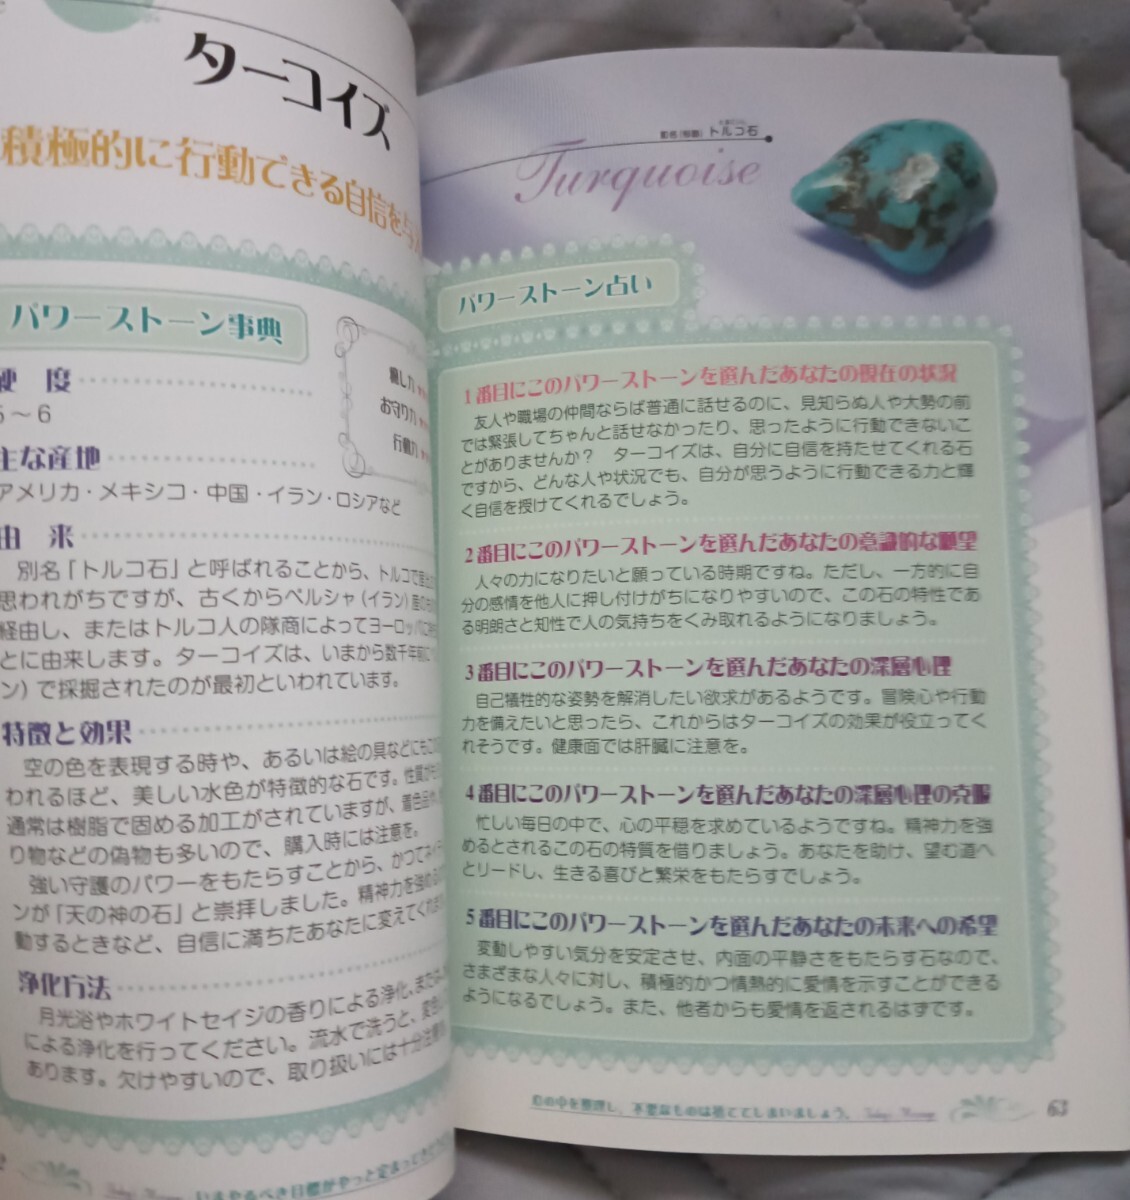 ターコイズ
積極的に行動できる自信を与
パワーストーン事典
硬 度
5～6
主な産地
アメリカ・メキシコ・中国・イラン・ロシアなど
由 来
別名「トルコ石」と呼ばれることから、トルコで
思われがちですが、古くからペルシャ(イラン)産の
経由し、またはトルコ人の隊商によってヨーロッパに
とに由来します。ターコイズは、いまから数千年前に
ン)で採掘されたのが最初といわれています。
特徴と効果
空の色を表現する時や、あるいは絵の具などにも
われるほど、美しい水色が特徴的な石です。性質が
通常は樹脂で固める加工がされていますが、着色品や
り物などの偽物も多いので、購入時には注意を。
強い守護のパワーをもたらすことから、かつてネイティ
ンが「天の神の石」と崇拝しました。精神力を強める
動するときなど、自信に満ちたあなたに変えてくれ
浄化方法
月光浴やホワイトセイジの香りによる浄化、または
による浄化を行ってください。流水で洗うと、変色
あります。欠けやすいので、取り扱いには十分注意
癒し力
お守り力
行動力
いまやるべき目標がやっと定まってき
和名(別名) トルコ石
Turquoise
パワーストーン占い
1番目にこのパワーストーンを選んだあなたの現在の状況
友人や職場の仲間ならば普通に話せるのに、見知らぬ人や大勢の前
では緊張してちゃんと話せなかったり、思ったように行動できないこ
とがありませんか? ターコイズは、自分に自信を持たせてくれる石
ですから、どんな人や状況でも、自分が思うように行動できる力と輝
く自信を授けてくれるでしょう。
2番目にこのパワーストーンを選んだあなたの意識的な願望
人々の力になりたいと願っている時期ですね。ただし、一方的に自
分の感情を他人に押し付けがちになりやすいので、この石の特性であ
る明朗さと知性で人の気持ちをくみ取れるようになりましょう。
3番目にこのパワーストーンを選んだあなたの深層心理
自己犠牲的な姿勢を解消したい欲求があるようです。冒険心や行動
力を備えたいと思ったら、これからはターコイズの効果が役立ってく
れそうです。健康面では肝臓に注意を。
4番目にこのパワーストーンを選んだあなたの深層心理の克服
忙しい毎日の中で、心の平穏を求めているようですね。精神力を強
めるとされるこの石の特質を借りましょう。あなたを助け、望む道へ
とリードし、生きる喜びと繁栄をもたらすでしょう。
5番目にこのパワーストーンを選んだあなたの未来への希望
変動しやすい気分を安定させ、内面の平静さをもたらす石なので、
さまざまな人々に対し、積極的かつ情熱的に愛情を示すことができる
ようになるでしょう。また、他者からも愛情を返されるはずです。
心の中を整理し、不要なものは捨ててしまいましょう。
63